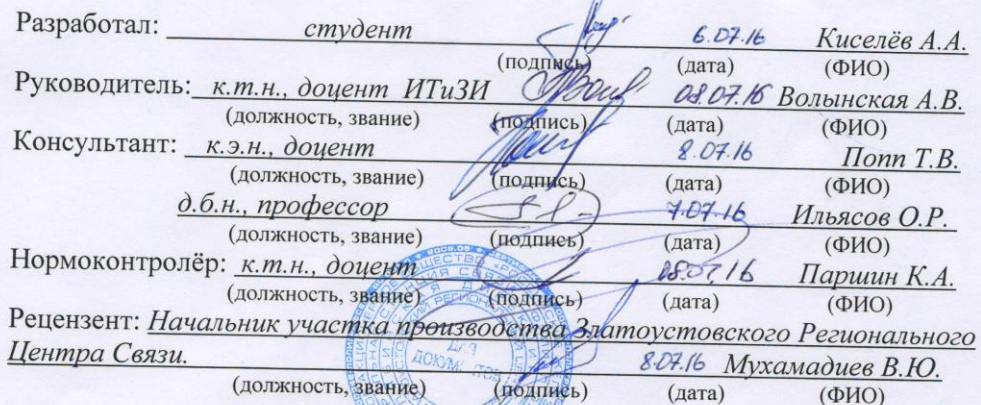 Разработал: студент 6.07.16 Киселёв А.А.
(подпись) (дата) (ФИО)
Руководитель: к.т.н., доцент ИТиЗИ 08.07.16 Волынская А.В.
(должность, звание) (подпись) (дата) (ФИО)
Консультант: к.э.н., доцент 8.07.16 Попп Т.В.
(должность, звание) (подпись) (дата) (ФИО)
д.б.н., профессор 7.07.16 Ильясов О.Р.
(должность, звание) (подпись) (дата) (ФИО)
Нормоконтролёр: к.т.н., доцент 08.07.16 Паршин К.А.
(должность, звание) (подпись) (дата) (ФИО)
Рецензент: Начальник участка производства Златоустовского Регионального
Центра Связи. 8.07.16 Мухамадиев В.Ю.
(должность, звание) (подпись) (дата) (ФИО)
ДЛЯ